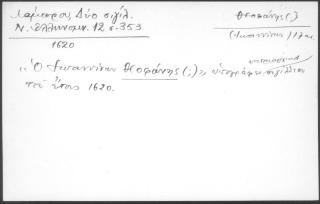 Λάμπρου, Δύο σιγίλ.
Ν. Ἑλληνομν. 12 σ. 353
Θεοφάνης (;)
(Ἰωαννίνων)
1620
« Ὁ Ἰωαννίνων Θεοφάνης (;) » ὑπογράφει σιγίλλιον
τοῦ ἔτους 1620.